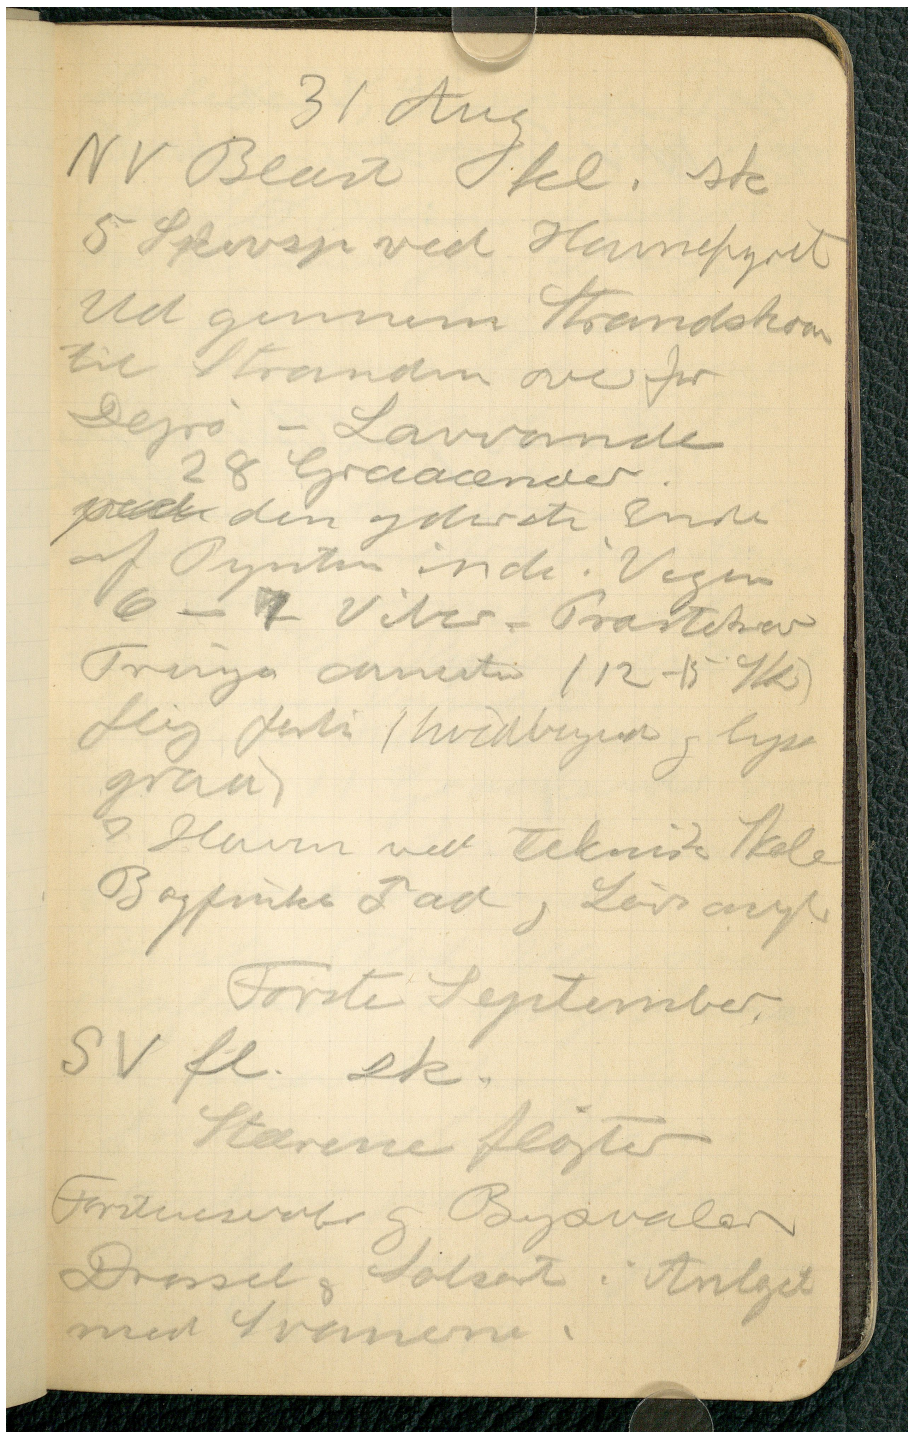 31 Aug
NV Blæst kl. sk
5 Skovsp ved Havnefyret
Ud gennem Strandskoven
til Stranden ove for
Dejrø - Lavvande
28 Graaænder.
den yderste Ende
af Pynten inde i Vigen
6 - 7 Viber - Præstekrav
Tringa (12-15 Stk)
fløj forbi (hvidbuget og lyse
graa)
I Haven ved Teknisk Skole
Bogfinke Tad og Løvsanger
Første September.
SV fl. sk.
Stærene fløjter
Forstuesvaler og Bysvaler
Drossel og Solsort i Anlæget
med Svanerne.